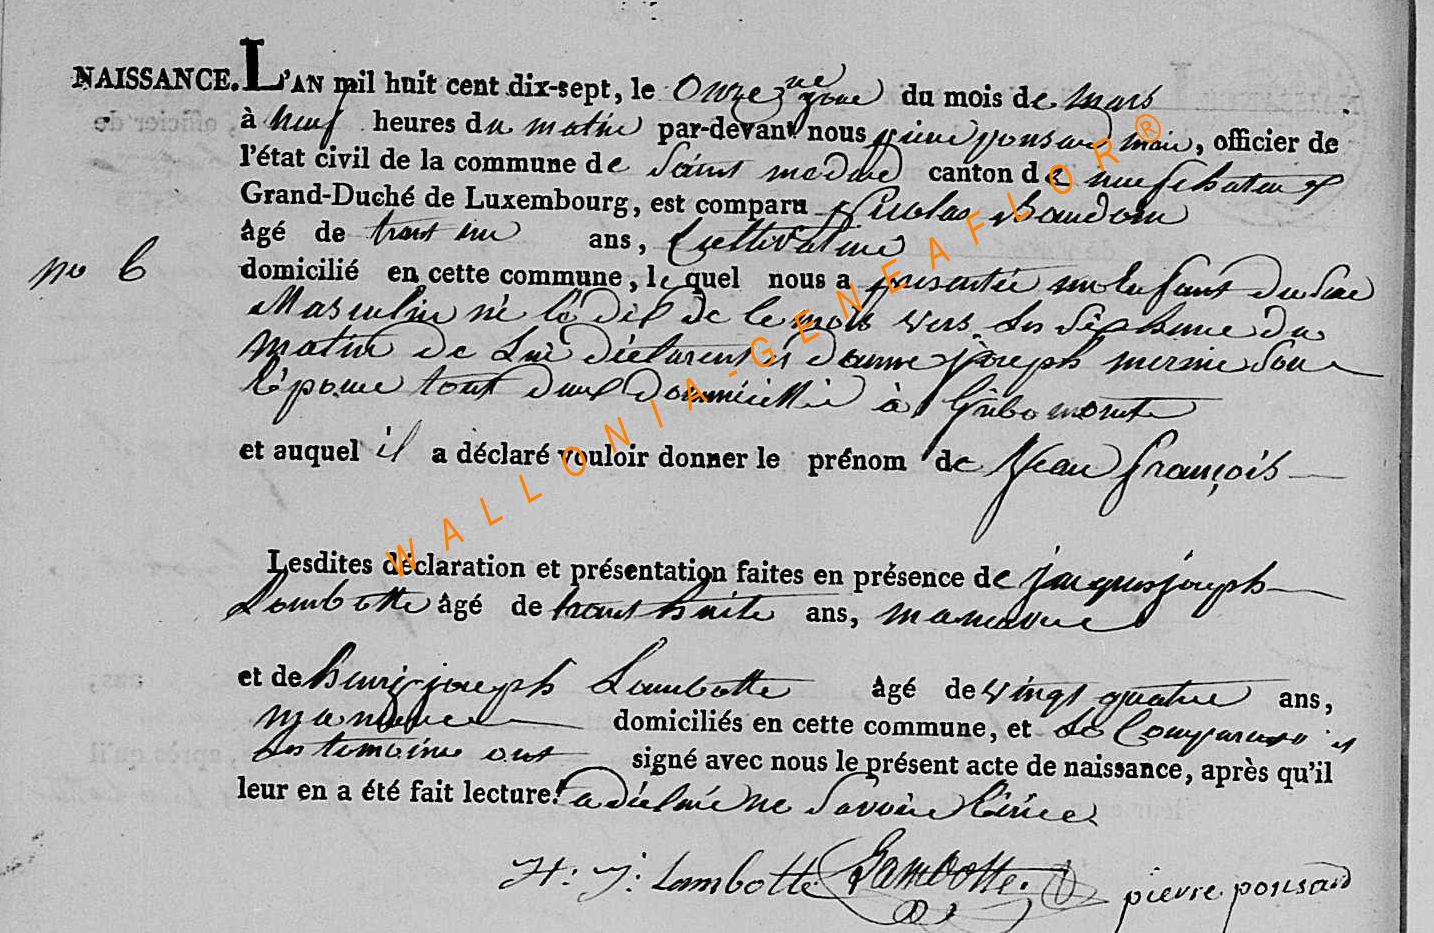 NAISSANCE. L'AN mil huit cent dix-sept, le onze du mois de mars
à neuf heures du matin par-devant nous pierre ponsard maire, officier de
l'état civil de la commune de Saint medard canton de neufchateau
Grand-Duché de Luxembourg, est comparu Nicolas Baudoin
âgé de ans, Cultivateur
no 6
domicilié en cette commune, le quel nous a presentée un Enfant du Sexe
Masculin né le dix de ce mois vers les Six heures du
Matin de Lui déclarent et d'anne joseph Son
Epouse tout deux domiciliés à Gribomont
et auquel il a déclaré vouloir donner le prénom de Jean françois
Lesdites déclaration et présentation faites en présence de jacques joseph
Lambotte âgé de trent huite ans, manœuvre
et de henrij joseph Lambotte âgé de vingt quatre ans,
manœuvre domiciliés en cette commune, et Le Comparent et
les temoins ont signé avec nous le présent acte de naissance, après qu'il
leur en a été fait lecture. a déclaré ne Savoir Ecrire
H: J: Lambotte Lambotte. pierre ponsard
WALLONIA-GENEAFLOR®